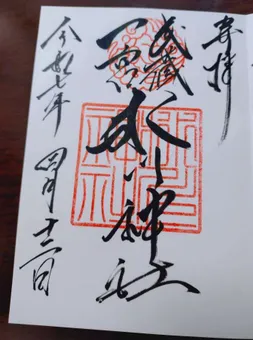 奉拝
武蔵
一宮
氷川神社
令和七年四月十二日